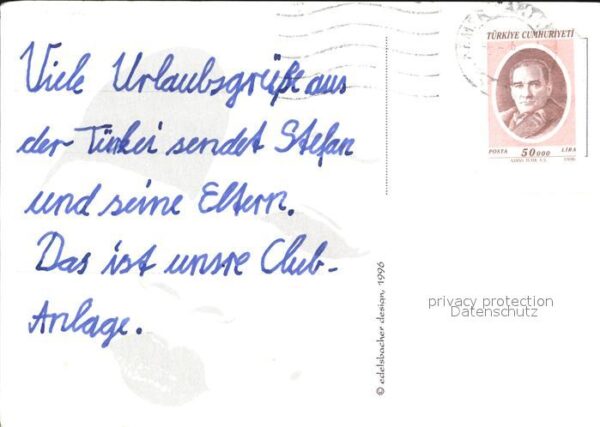 Viele Urlaubsgrüße aus
der Türkei sendet Stefan
und seine Eltern.
Das ist unsre Club-
Anlage.
TÜRKİYE CUMHURİYETİ
POSTA 50000 LİRA
1996
© edelsbacher design, 1996
privacy protection
Datenschutz